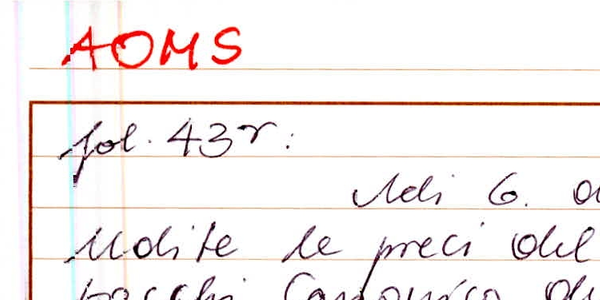 AOMS
fol. 43r:
Adi 6.
Udite le preci del
Canonico